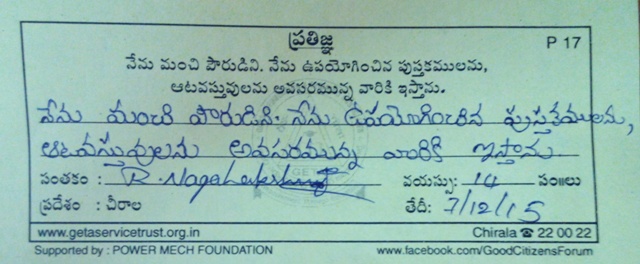 ప్రతిజ్ఞ
P 17
నేను మంచి పౌరుడిని. నేను ఉపయోగించిన పుస్తకములను,
ఆటవస్తువులను అవసరమున్న వారికి ఇస్తాను.
నేను మంచి పౌరుడిని. నేను ఉపయోగించిన పుస్తకములను,
ఆటవస్తువులను అవసరమున్న వారికి ఇస్తాను
సంతకం : R. Naga వయస్సు: 14 సం॥లు
ప్రదేశం : చీరాల తేదీ: 7/12/15
www.getaservicetrust.org.in Chirala ☎ 22 00 22
Supported by : POWER MECH FOUNDATION www.facebook.com/GoodCitizensForum